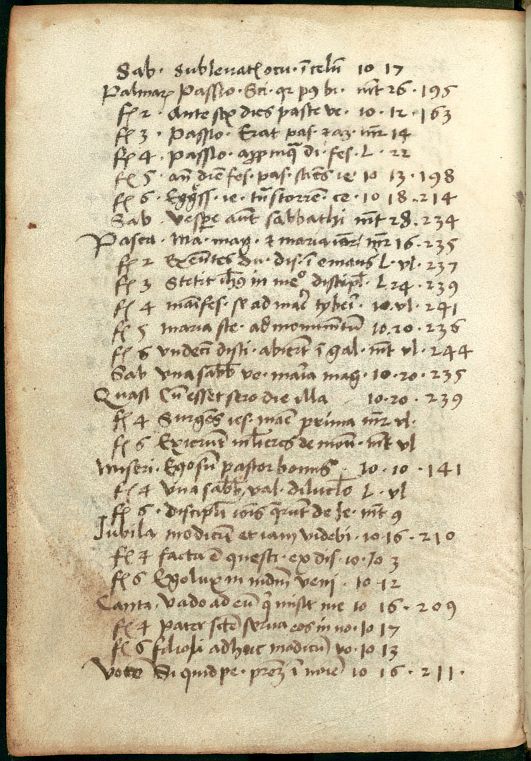 Sab. Sublevat. ocu. i celu 10 17
Palmar. Passio. Sci. qr pq bi. mt 26. 195
fe 2. Ante sex dies pasce ve. 10. 12. 163
fe 3. Passio. Erat pas. 7 az. mr 14
fe 4. passio. di. fes. L. 22
fe 5. an diē fes. pas. sciēs ie. 10 13. 198
fe 6. Egss. ie. trās torrēn. ce. 10 18. 214
Sab Vespe aut sabbathi mt 28. 234
Pasca. Ma. mag. 7 maria mr 16. 235
fe 2 Exētes du. dis. i emaus L. vl. 237
fe 3 Stetit ihs in me discipl. L 24. 239
fe 4 manifes. se ad mar tyber. 10. vl. 241
fe 5 maria ste. ad monumētū 10. 20. 236
fe 6 undeci disci. abiert i gal. mt vl. 244
Sab una sabb ve. maria mag. 10. 20. 235
Quasi Cu esset sero die illa 10. 20. 239
fe 4 Surgēs ies. mane prima mr vl.
fe 6 Exierūt mlieres de mon. mt vl
Miseri. Ego sū pastor bonus. 10. 10. 141
fe 4 una sabb. val. diluclo L. vl
fe 6. discipli iois de Je. mt 9
Jubila modicū et iam videbi. 10. 16. 210
fe 4 facta ē questi. ex dis. 10. Jo 3
fe 6 Ego lux in mdm veni. 10. 12
Canta. vado ad eū q misit me 10 16. 209
fe 4 pater scte serva eos in no. 10 17
fe 6 filioli adhuc modicū vo. 10 13
Voce Si quid pe. prem i noie 10 16. 211.